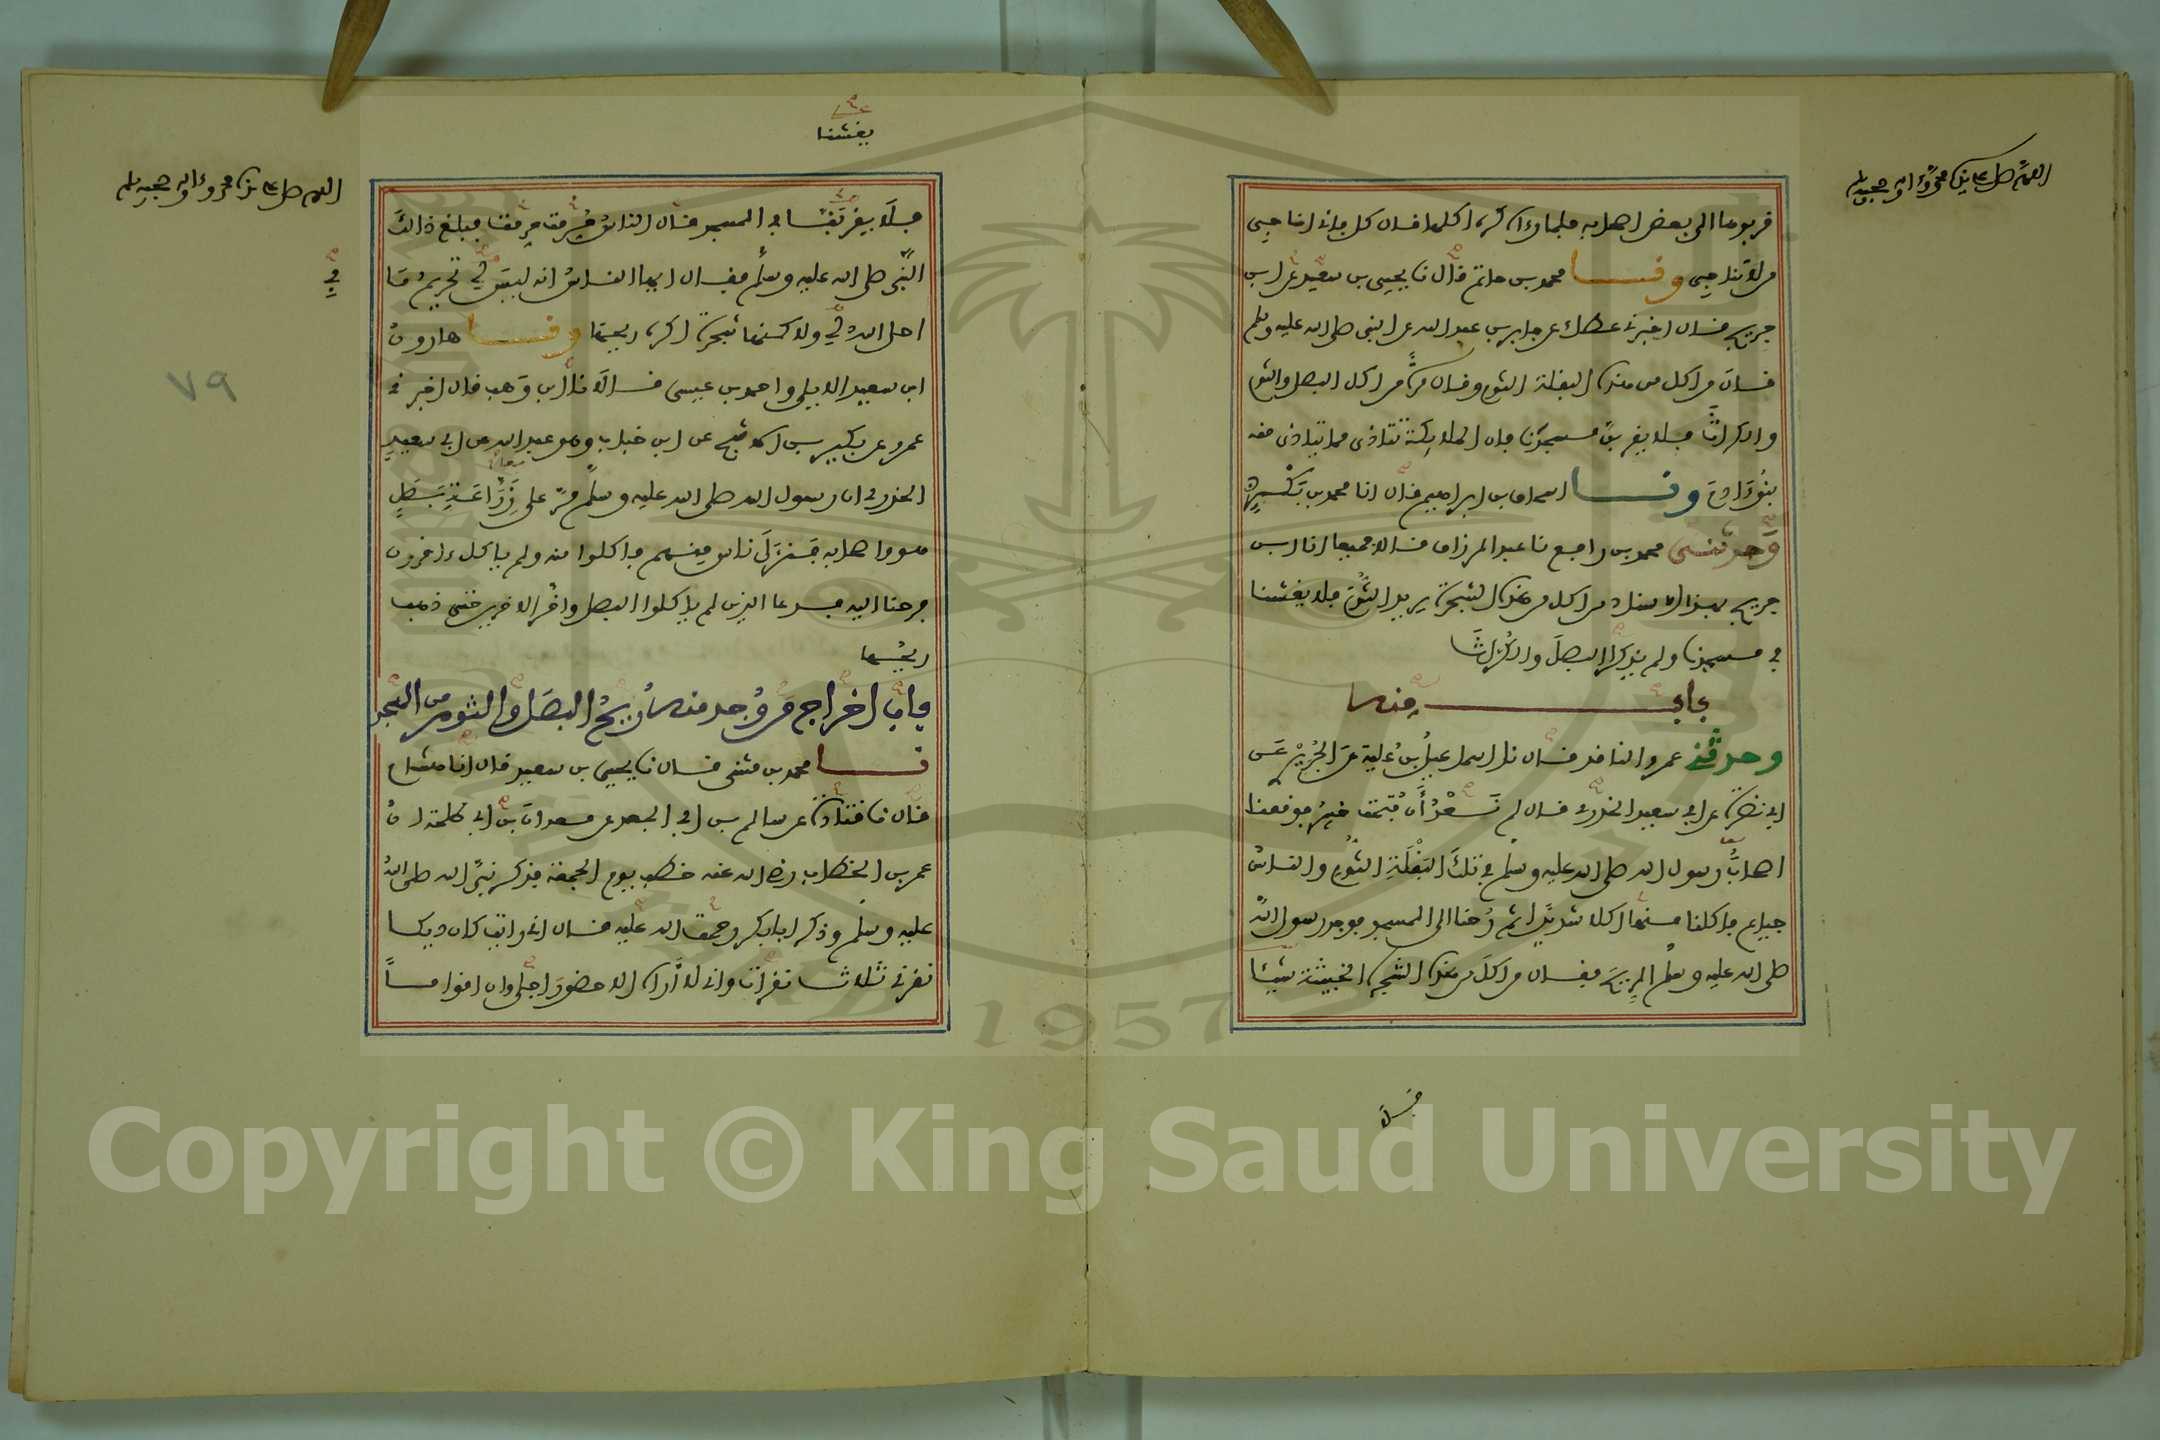 اللهم صل على سيدنا محمد وءاله وصحبه وسلم
قربوها الى بعض اصحابه فلما رءاه كره اكلها قال كل فاني اناجي
من لا تناجي ونا محمد بن حاتم قال نا يحيى بن سعيد عن ابن
جريج قال اخبرني عطاء عن جابر بن عبد الله عن النبي صلى الله عليه وسلم
قال من اكل من هذه البقلة الثوم وقال مرة من اكل البصل والثوم
والكراث فلا يقربن مسجدنا فان الملائكة تتاذى مما يتاذى منه
بنو ءادم ونا اسحاق بن ابراهيم قال انا محمد بن بكر
وحدثني محمد بن رافع نا عبد الرزاق قالا جميعا انا ابن
جريج بهذا الاسناد من اكل من هذه الشجرة يريد الثوم فلا يغشنا
في مسجدنا ولم يذكر البصل والكراث
باب منه
وحدثني عمرو الناقد قال نا اسماعيل بن علية عن الجريري عن
ابي نضرة عن ابي سعيد الخدري قال لم نعد أن فتحت خيبر فوقعنا
اصحاب رسول الله صلى الله عليه وسلم في تلك البقلة الثوم والناس
جياع فاكلنا منها اكلا شديدا ثم رحنا الى المسجد فوجد رسول الله
صلى الله عليه وسلم الريح فقال من اكل من هذه الشجرة الخبيثة شيئا
فلا
يغشنا
اللهم صل على سيدنا محمد وءاله وصحبه وسلم
فلا يقربنا في المسجد قال الناس حرمت حرمت فبلغ ذالك
النبي صلى الله عليه وسلم فقال ايها الناس انه ليس لي تحريم ما
احل الله لي ولاكنها شجرة اكره ريحها ونا هارون
ابن سعيد الايلي واحمد بن عيسى قالا نا ابن وهب قال اخبرني
عمرو عن بكير بن الاشج عن ابن خباب وهو عبد الله عن ابي سعيد
الخدري ان رسول الله صلى الله عليه وسلم مر على زراعة بصل
هو واصحابه فنزل ناس منهم فاكلوا منه ولم ياكل ءاخرون
فرحنا اليه فدعا الذين لم ياكلوا البصل واخر الاخرين حتى ذهب
ريحها
باب اخراج من وجد منه ريح البصل والثوم من المسجد
نا محمد بن مثنى قال نا يحيى بن سعيد قال نا هشام
قال نا قتادة عن سالم بن ابي الجعد عن معدان بن ابي طلحة ان
عمر بن الخطاب رضي الله عنه خطب يوم الجمعة فذكر نبي الله صلى الله
عليه وسلم وذكر ابا بكر رحمة الله عليه قال اني رايت كان ديكا
نقرني ثلاث نقرات واني لا أراه الا حضور اجلي وان اقواما
٧٩
Copyright © King Saud University
1957